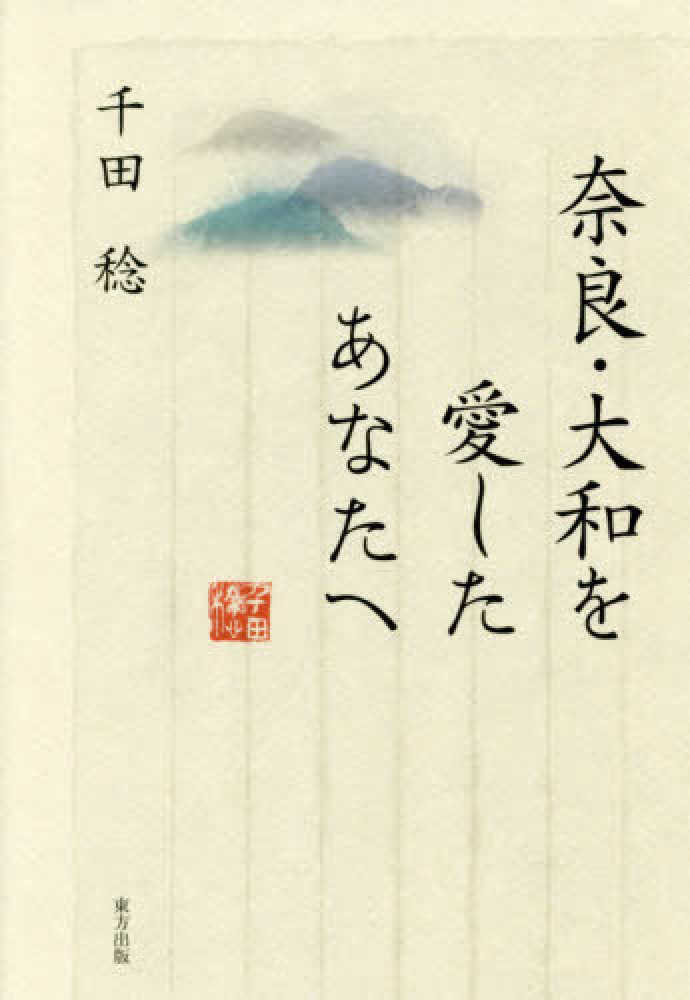 奈良・大和を
愛した
あなたへ
千田 稔
千田
東方出版